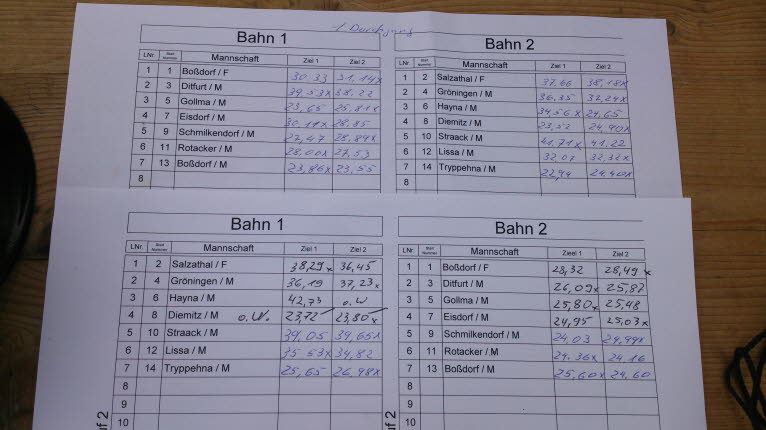 -1 Durchgang
Bahn 1
LNr. Start Nummer Mannschaft Ziel 1 Ziel 2
1 1 Boßdorf / F 30,33 31,14x
2 3 Ditfurt / M 39,53x 38,22
3 5 Gollma / M 23,65 25,81x
4 7 Eisdorf / M 30,19x 28,85
5 9 Schmilkendorf / M 27,47 28,84x
6 11 Rotacker / M 28,00x 27,53
7 13 Boßdorf / M 23,86x 23,55
8
Bahn 2
LNr. Start Nummer Mannschaft Ziel 1 Ziel 2
1 2 Salzathal / F 37,66 38,18x
2 4 Gröningen / M 36,35 37,24x
3 6 Hayna / M 34,56x 24,65
4 8 Diemitz / M 23,52 24,90x
5 10 Straack / M 41,71x 41,22
6 12 Lissa / M 32,07 32,32x
7 14 Tryppehna / M 22,94 24,40x
8
Bahn 1
LNr. Start Nummer Mannschaft Ziel 1 Ziel 2
1 2 Salzathal / F 38,29x 36,45
2 4 Gröningen / M 36,19 37,23x
3 6 Hayna / M 42,73 o.W
4 8 Diemitz / M o.W. 23,72 23,80x
5 10 Straack / M 39,05 39,65x
6 12 Lissa / M 35,53x 34,82
7 14 Tryppehna / M 25,65 26,98x
8
9
10
Bahn 2
LNr. Start Nummer Mannschaft Zieel 1 Ziel 2
1 1 Boßdorf / F 28,32 28,49x
2 3 Ditfurt / M 26,09x 25,87
3 5 Gollma / M 25,80x 25,48
4 7 Eisdorf / M 24,95 25,03x
5 9 Schmilkendorf / M 24,03 24,99x
6 11 Rotacker / M 24,36x 24,16
7 13 Boßdorf / M 25,60x 24,60
8
9
10
uf 2
uf 2